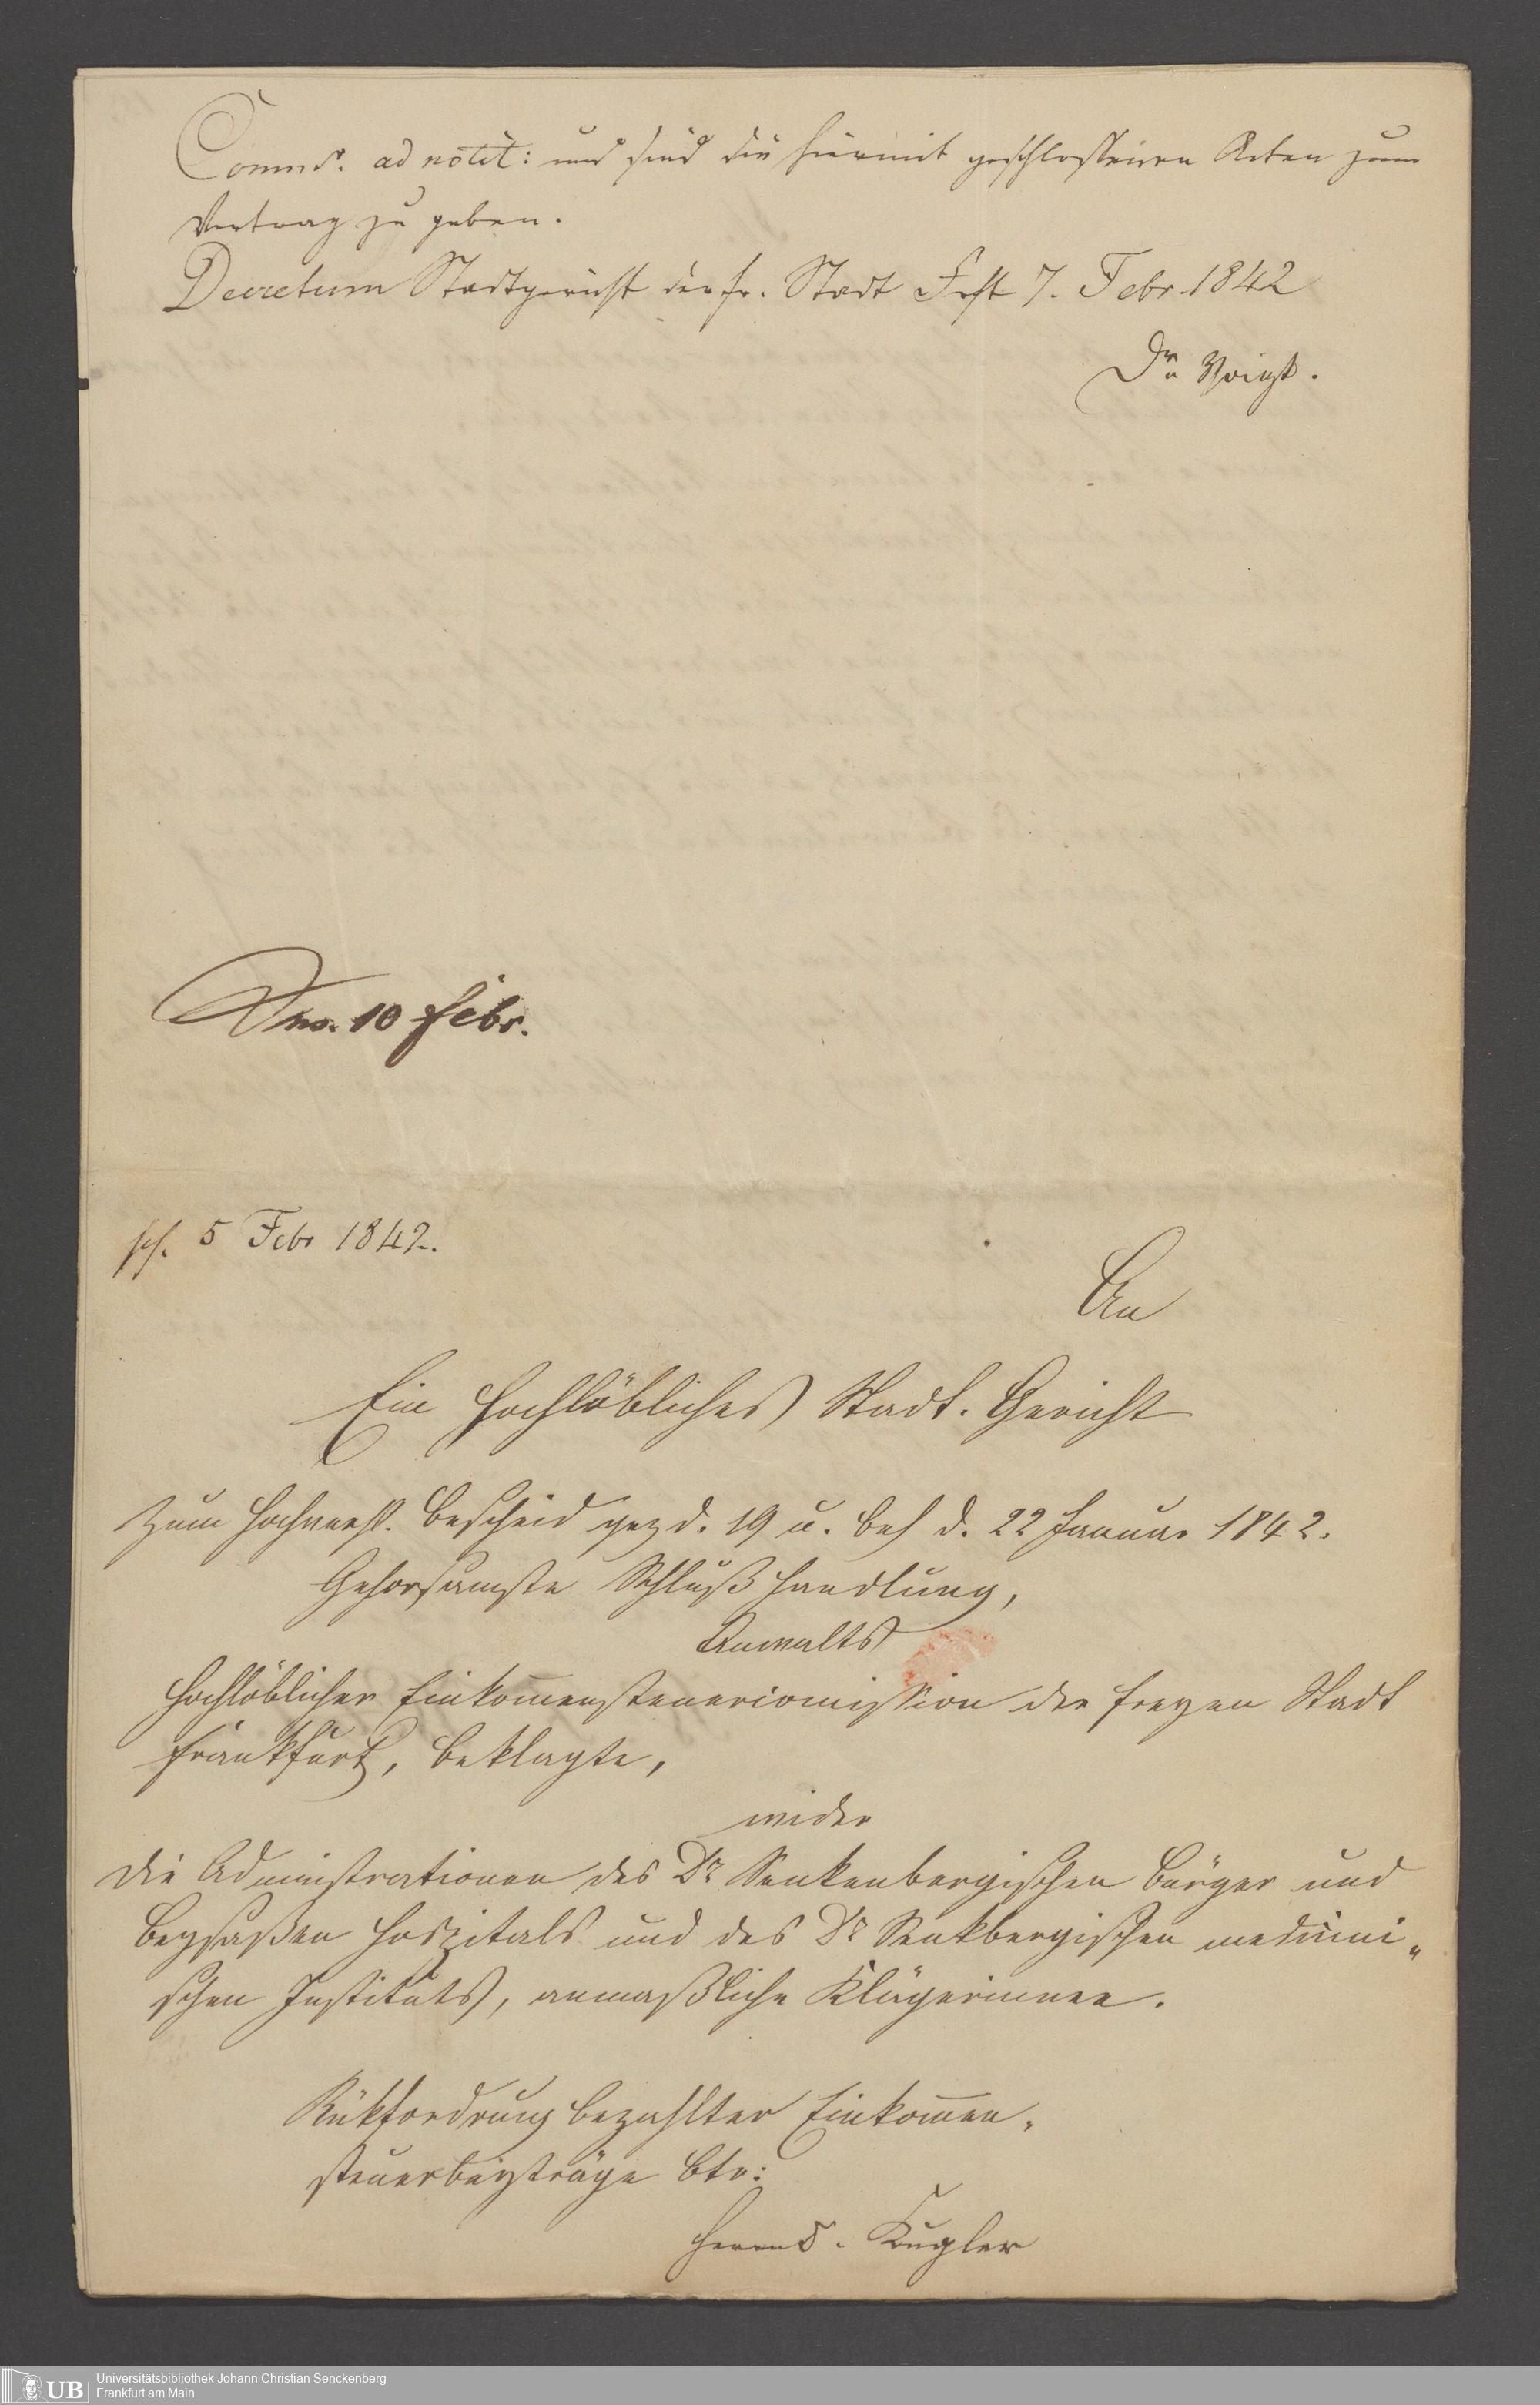 Commr. ad notit: und sind die hiermit geschlossenen Akten zum
Vortrag zu geben.
Decretum Stadtgericht der fr. Stadt Frft 7. Febr 1842
Dr. Voigt.
10 Febr.
5 Febr 1842.
An
Ein Hochlöbliches Stadt-Gericht
Zum hochverehrl. Bescheid gez d. 19 u. beh d. 22 Januar 1842.
Gehorsamste Schlußhandlung,
Anwalts
Hochlöblicher Einkom̄ensteuercom̄ission der freyen Stadt
Frankfurt, Beklagte,
wider
die Administrationen des Dr Senkenbergischen Bürger und
Beysaßen Hospitals und des Dr Senkbergischen medicini„
schen Instituts, anmaßliche Klägerinnen.
Rükforderung bezahlter Einkom̄en„
steuerbeyträge btr:
Kugler
Universitätsbibliothek Johann Christian Senckenberg
UB Frankfurt am Main